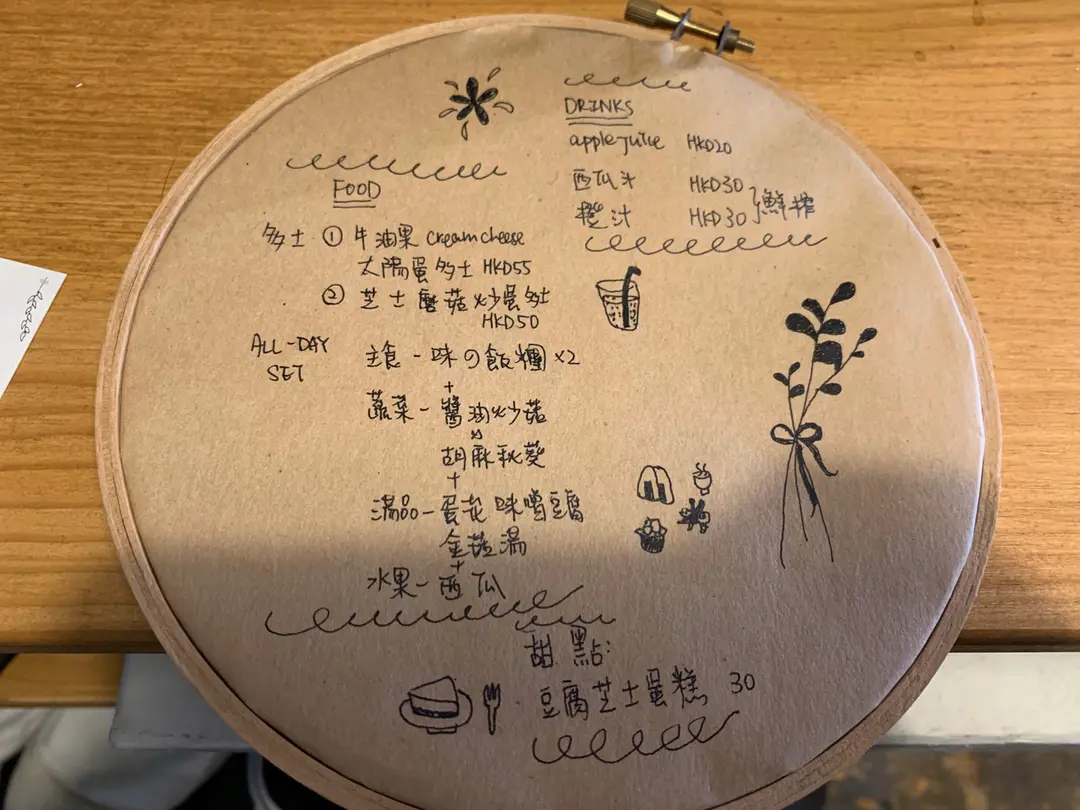 FOOD
多士 ① 牛油果 cream cheese
太陽蛋多士 HKD55
② 芝士磨菇炒蛋多士
HKD50
ALL-DAY
SET
主食 - 味の飯糰 x2
+
蔬菜 - 醬油炒菇
&
胡麻秋葵
+
湯品 - 蛋花味噌豆腐
金菇湯
+
水果 - 西瓜
DRINKS
apple juice HKD20
西瓜汁 HKD30
橙汁 HKD30 } 鮮搾
甜點:
豆腐芝士蛋糕 30